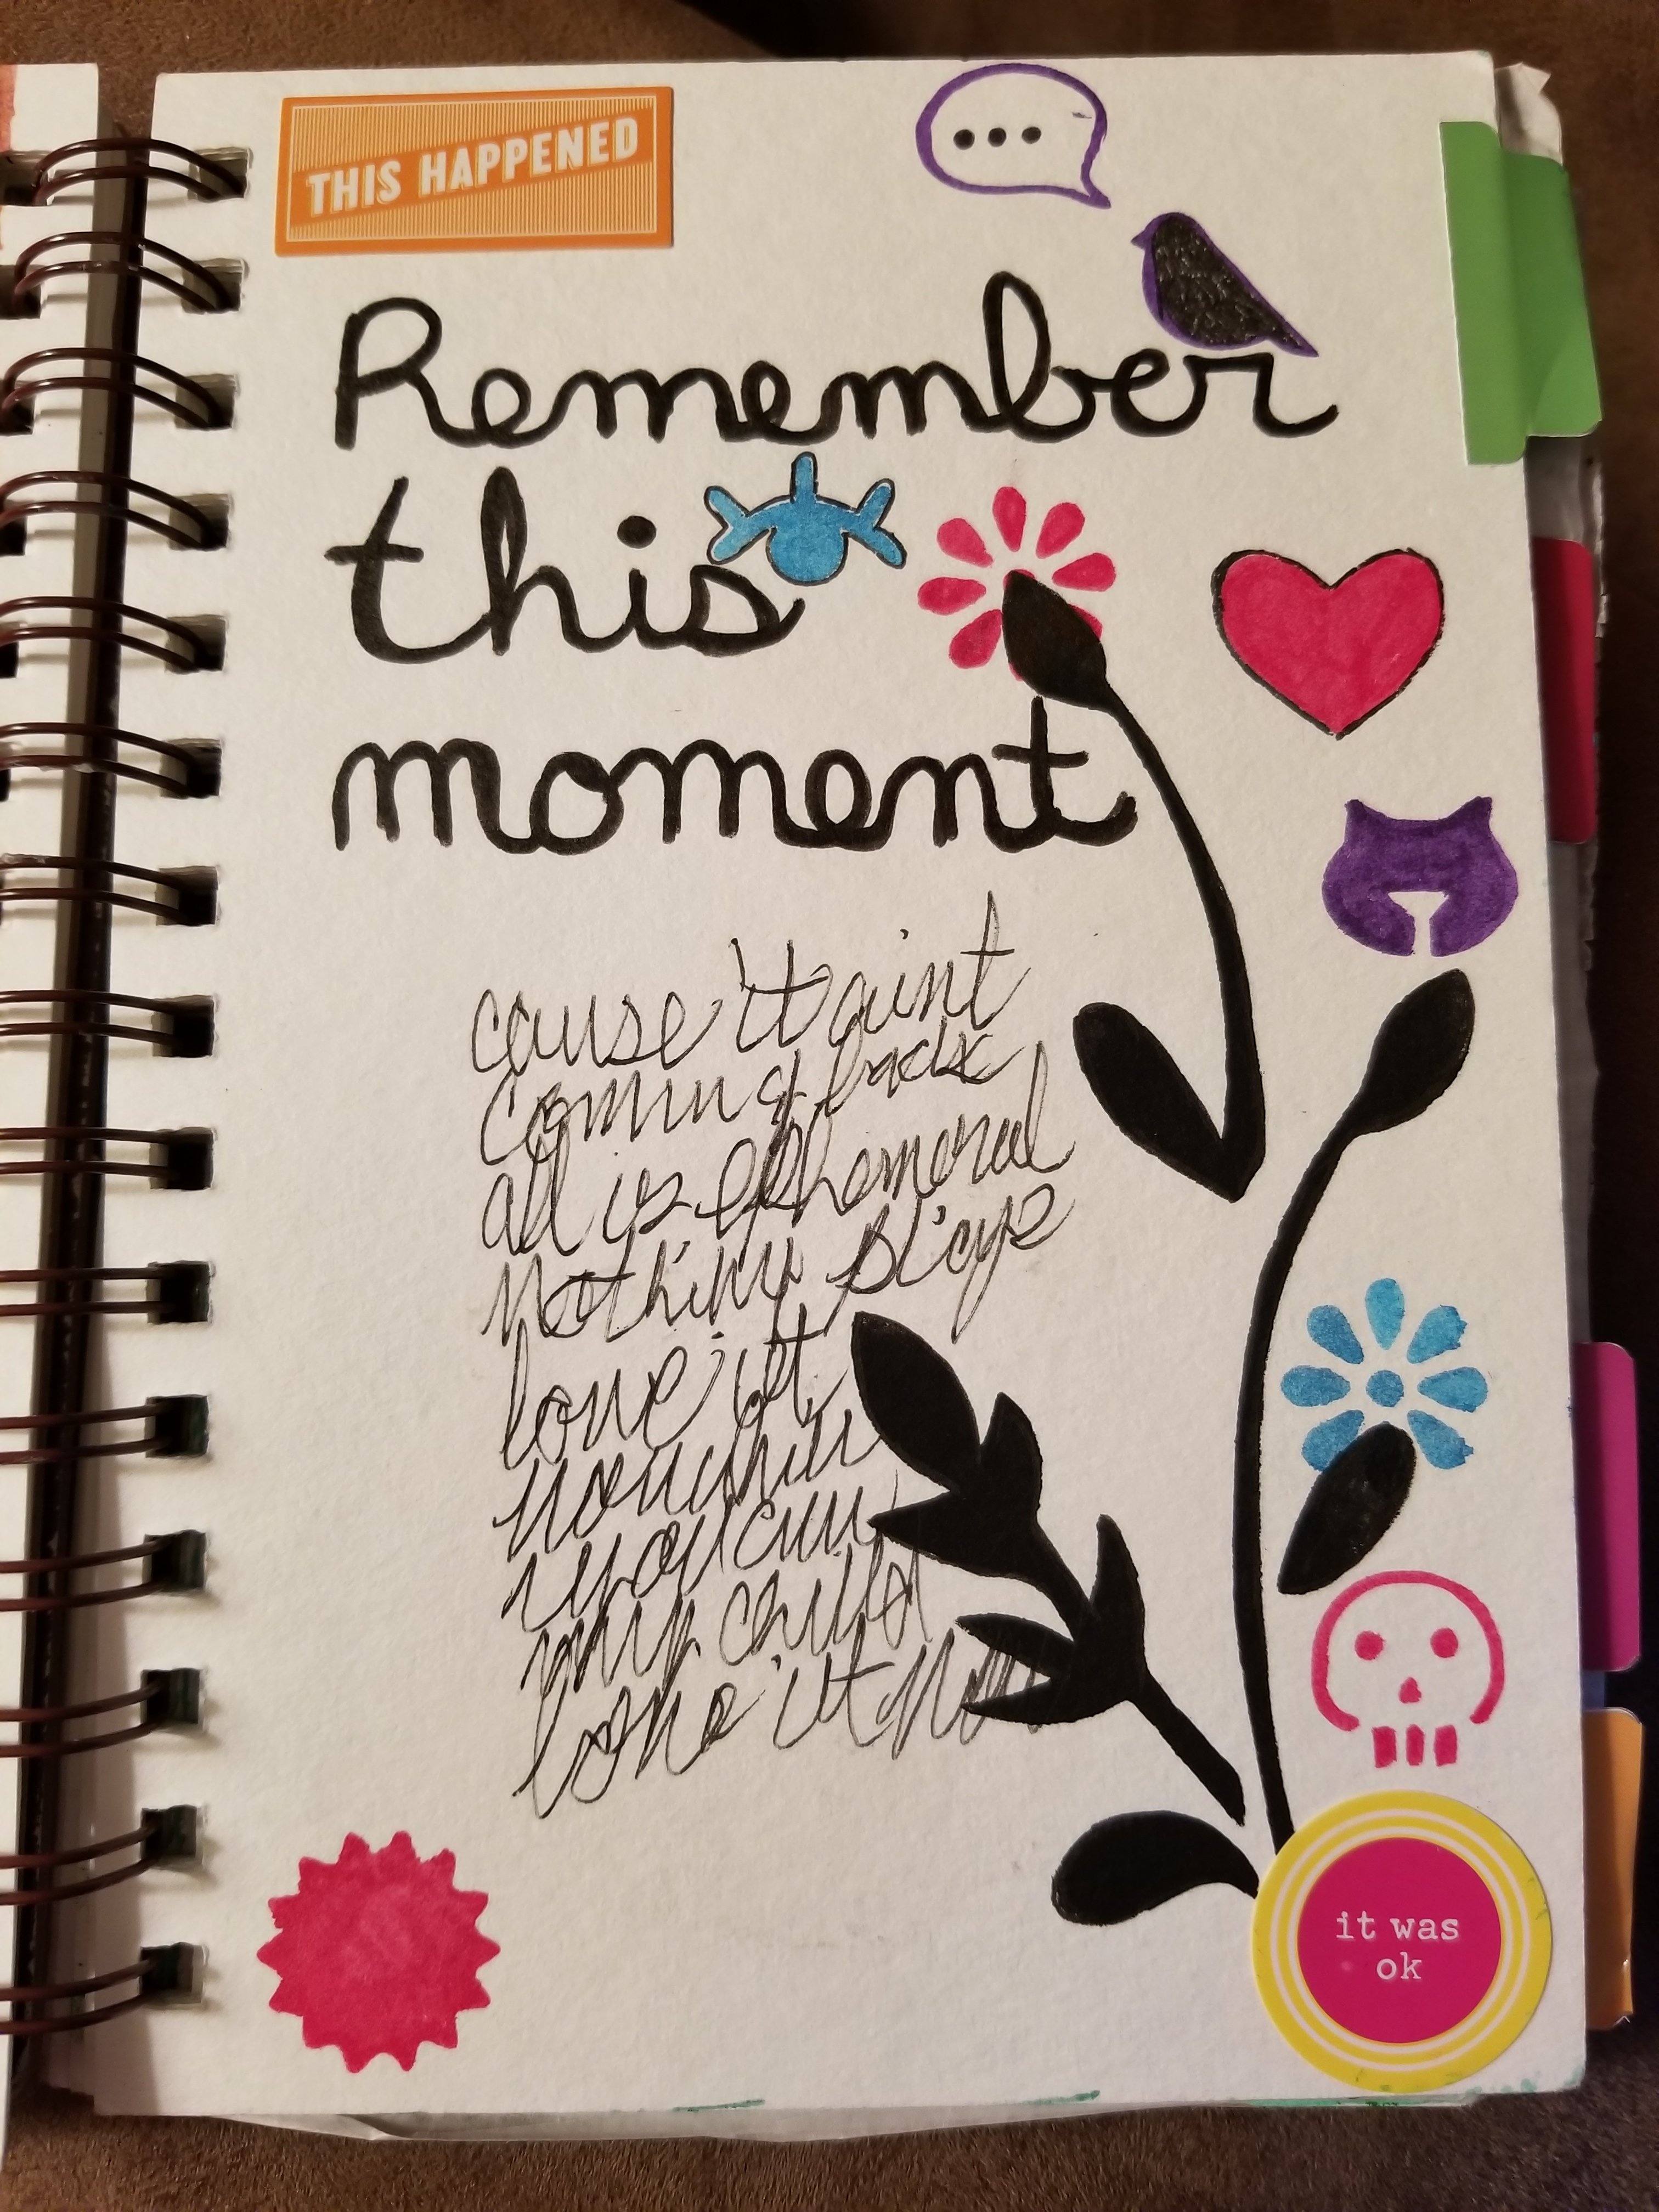 THIS HAPPENED
...
Remember
this
moment
cause it aint
coming back
all is ephemeral
nothing stays
love it
you can
my child
it now
it was
ok